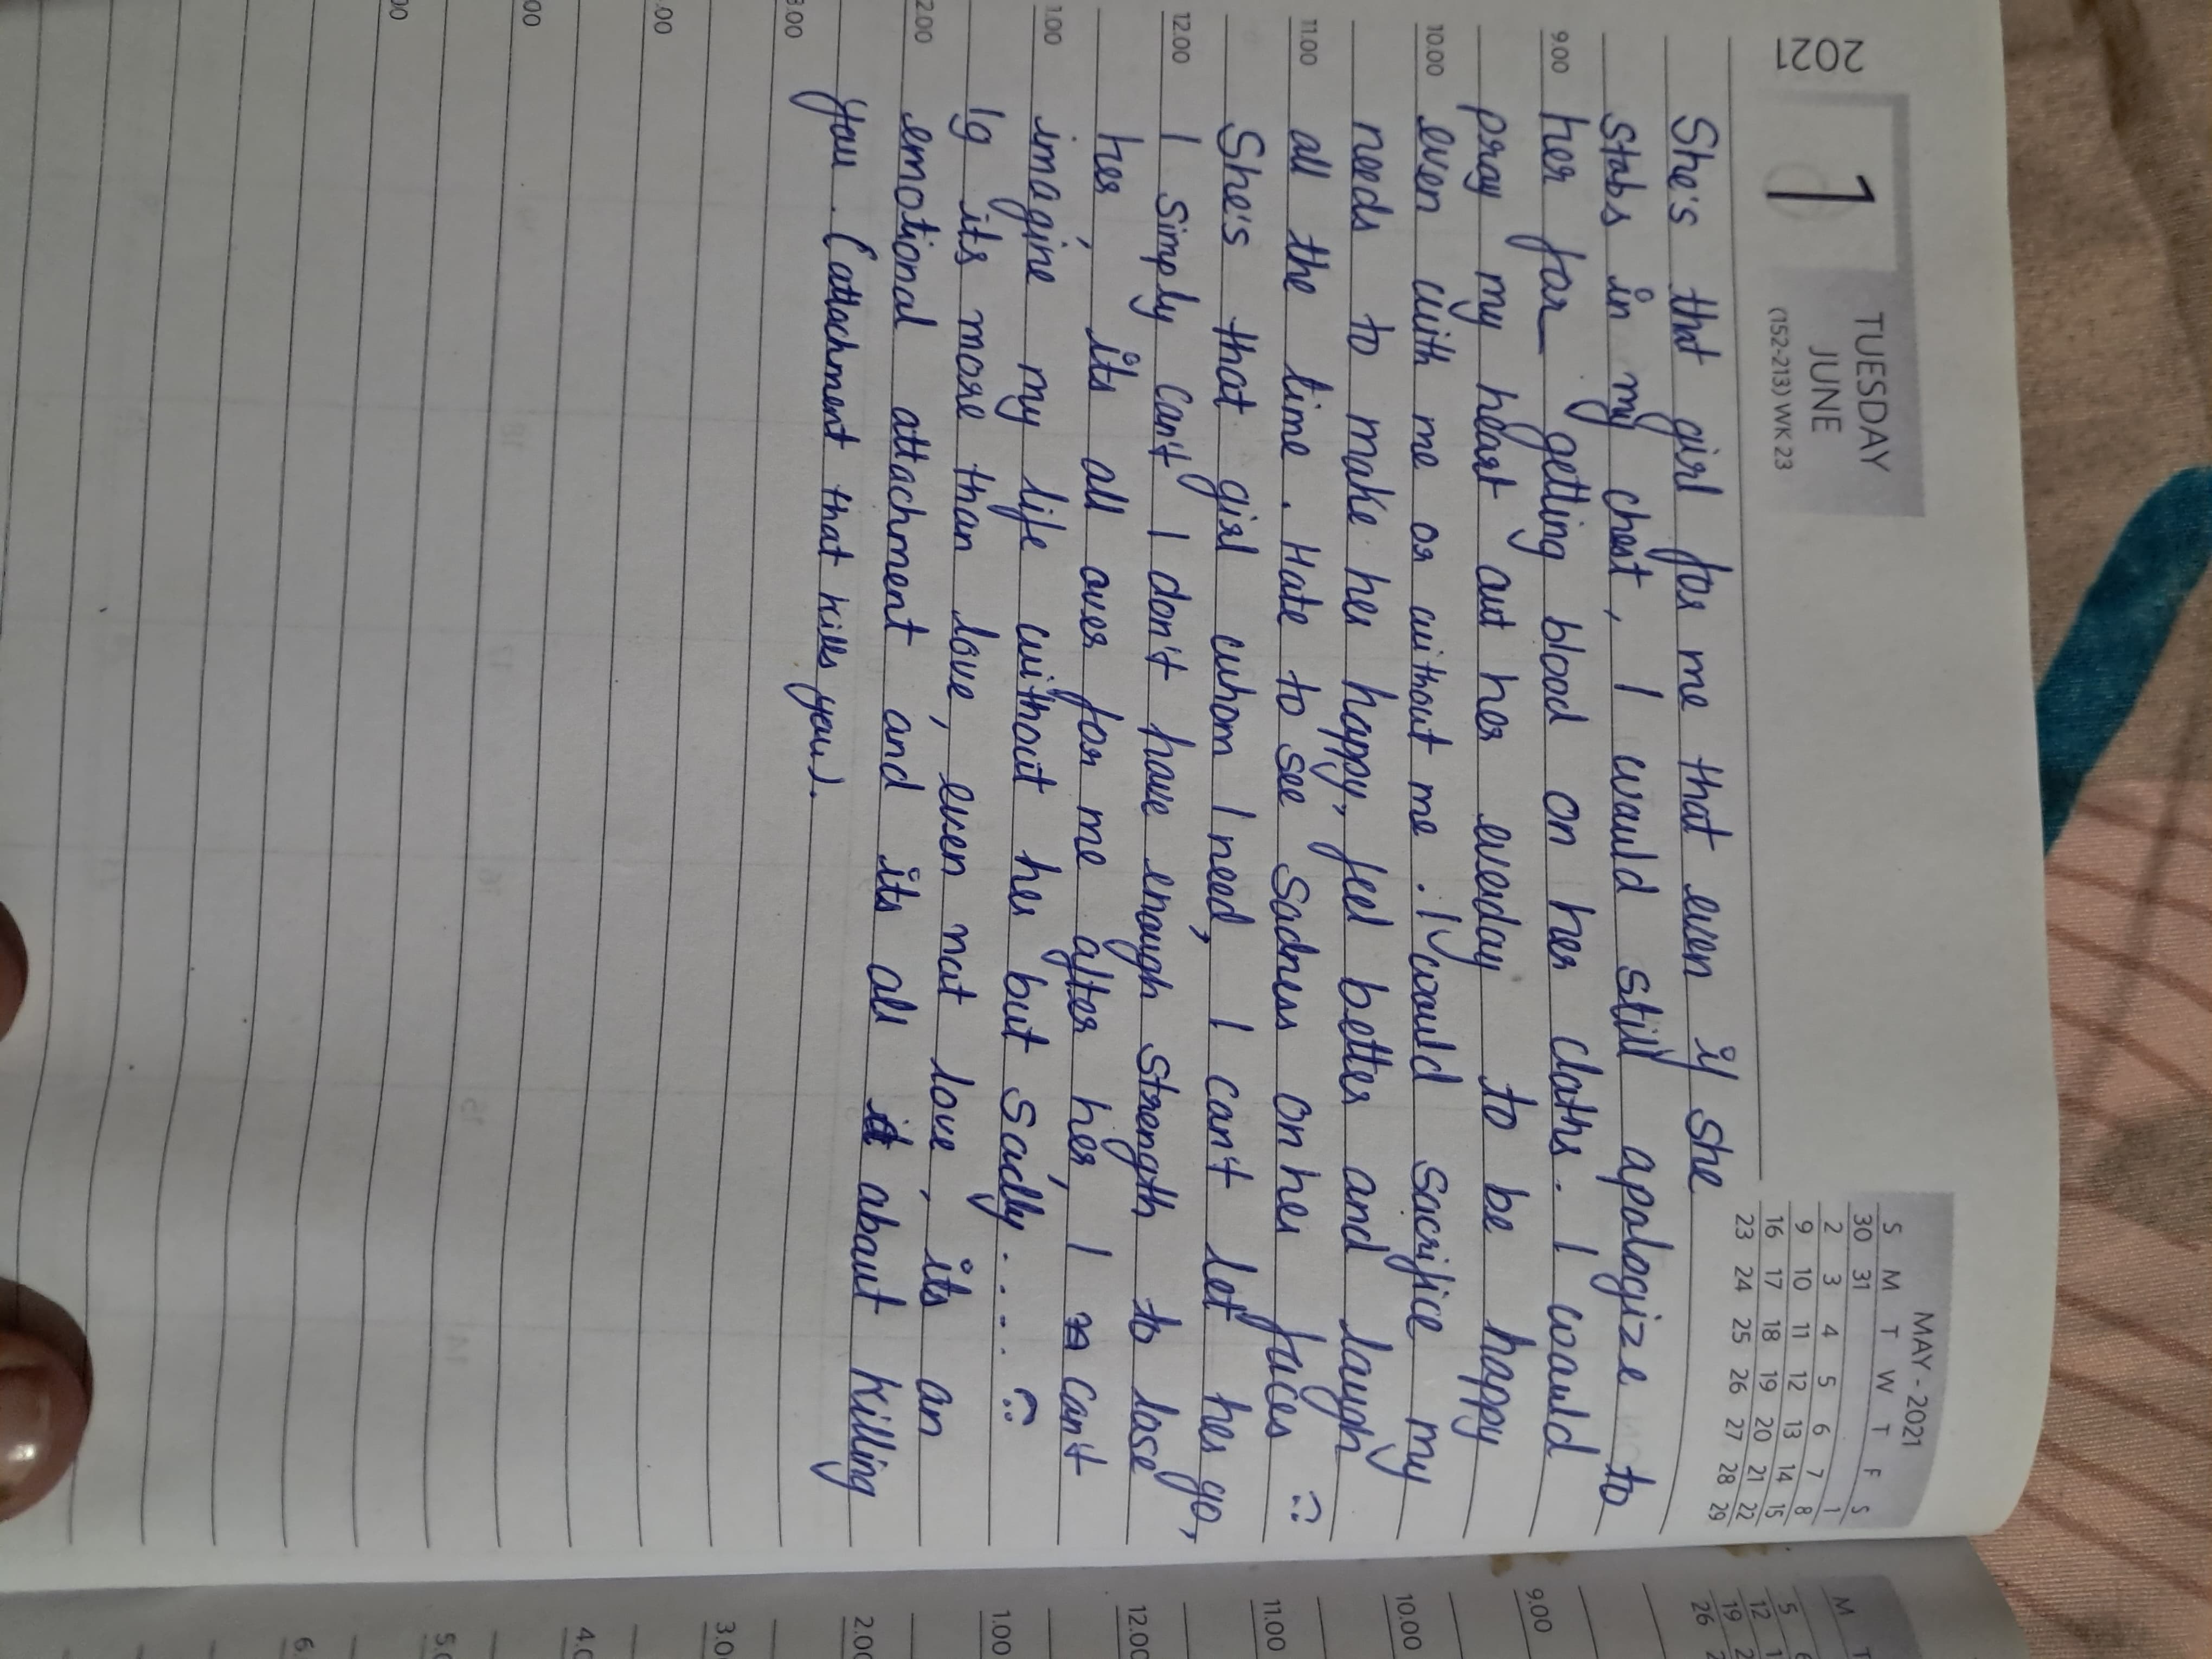 2021
1
TUESDAY
JUNE
(152-213) WK 23
MAY - 2021
S M T W T F S
30 31 1
2 3 4 5 6 7 8
9 10 11 12 13 14 15
16 17 18 19 20 21 22
23 24 25 26 27 28 29
She's tht girl for me that even if she
stabs in my chest, I would still apologize to
9.00 her for getting blood on her cloths. I would
pray my heart out her eveday to be happy
10.00 even with me or without me. I would sacrifice my
needs to make her happy, feel better and laugh
11.00 all the time. Hate to see sadness on her faces :(
She's that girl whom I need, I can't let her go,
12.00 I simply can't I don't have enough strength to lose
her, its all over for me after her, I can't
1.00 imagine my life without her but sadly..... :(
Ig its more than love, even not love, its an
2.00 emotional attachment and its all about killing
you. (attachment that kills you).
3.00
.00
.00
00
M T
5 6
12 1
19 2
26
9.00
10.00
11.00
12.00
1.00
2.00
3.0
4.0
5.
6